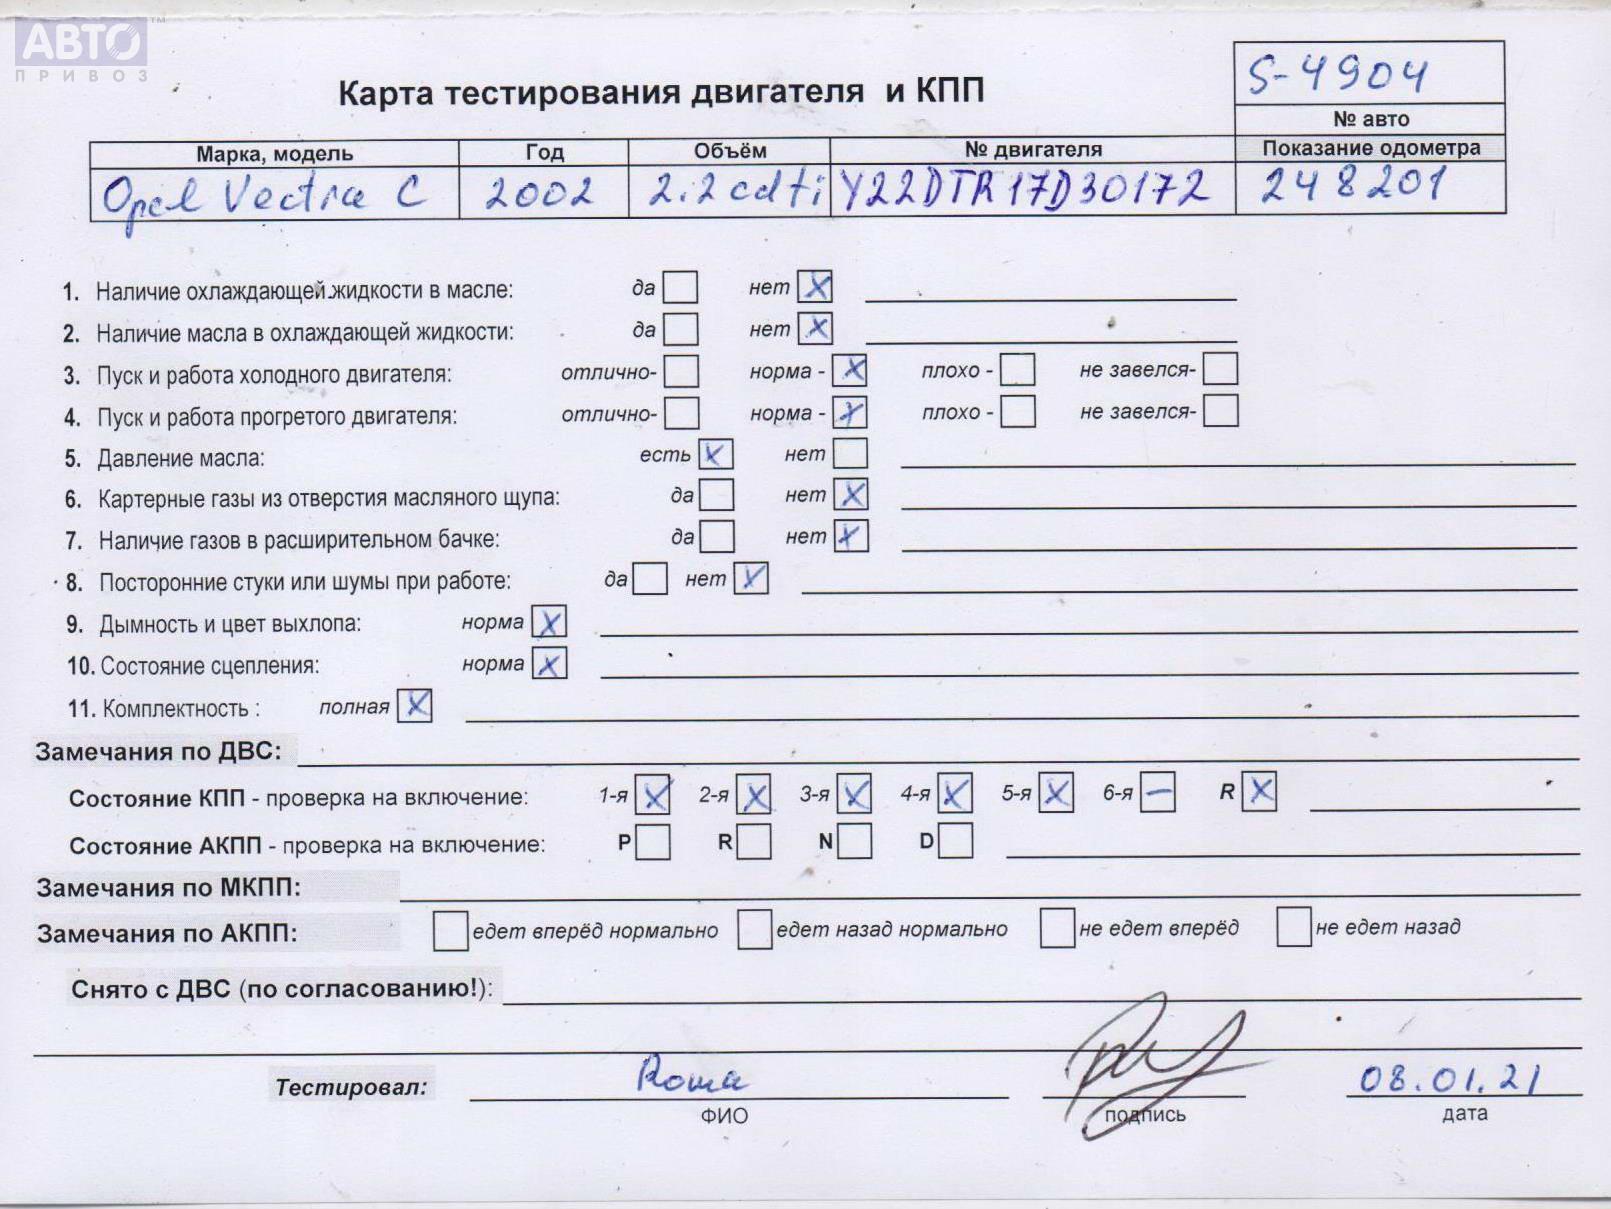 АВТО™
ПРИВОЗ
Карта тестирования двигателя и КПП
S-4904
№ авто
Марка, модель Год Объём № двигателя Показание одометра
Opel Vectra C 2002 2.2 cdti Y22DTR17D30172 248201
1. Наличие охлаждающей жидкости в масле: да нет X
2. Наличие масла в охлаждающей жидкости: да нет X
3. Пуск и работа холодного двигателя: отлично- норма - X плохо - не завелся-
4. Пуск и работа прогретого двигателя: отлично- норма - X плохо - не завелся-
5. Давление масла: есть X нет
6. Картерные газы из отверстия масляного щупа: да нет X
7. Наличие газов в расширительном бачке: да нет X
8. Посторонние стуки или шумы при работе: да нет X
9. Дымность и цвет выхлопа: норма X
10. Состояние сцепления: норма X
11. Комплектность : полная X
Замечания по ДВС:
Состояние КПП - проверка на включение: 1-я X 2-я X 3-я X 4-я X 5-я X 6-я – R X
Состояние АКПП - проверка на включение: P R N D
Замечания по МКПП:
Замечания по АКПП: едет вперёд нормально едет назад нормально не едет вперёд не едет назад
Снято с ДВС (по согласованию!):
Тестировал: Рома 08.01.21
ФИО подпись дата